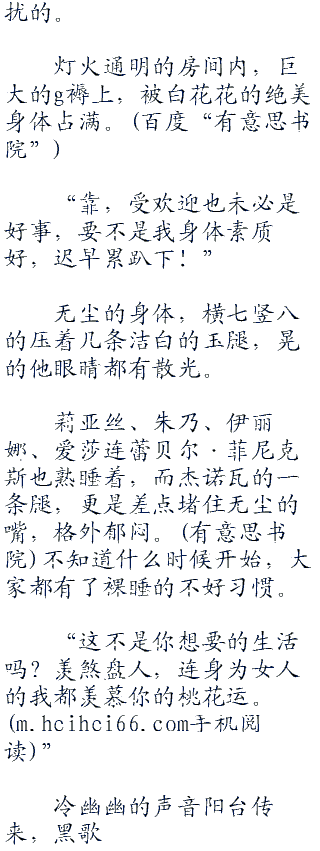 扰的。
灯火通明的房间内，巨
大的g褥上，被白花花的绝美
身体占满。(百度“有意思书
院”)
“靠，受欢迎也未必是
好事，要不是我身体素质
好，迟早累趴下！”
无尘的身体，横七竖八
的压着几条洁白的玉腿，晃
的他眼睛都有散光。
莉亚丝、朱乃、伊丽
娜、爱莎连蕾贝尔·菲尼克
斯也熟睡着，而杰诺瓦的一
条腿，更是差点堵住无尘的
嘴，格外郁闷。(有意思书
院)不知道什么时候开始，大
家都有了裸睡的不好习惯。
“这不是你想要的生活
吗？羡煞盘人，连身为女人
的我都羡慕你的桃花运。
(m.hcihci66.com手机阅
读)”
冷幽幽的声音阳台传
来，黑歌